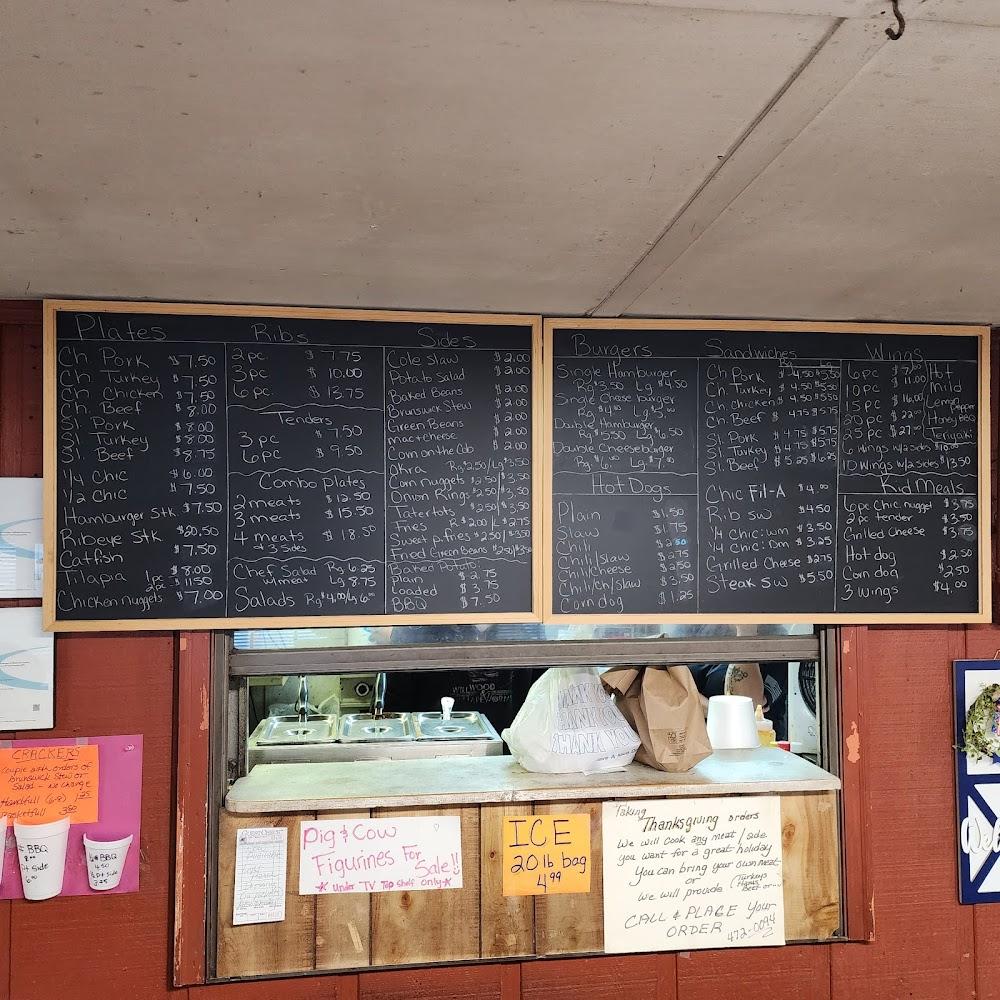 Plates
Ch. Pork $7.50
Ch. Turkey $7.50
Ch. Chicken $7.50
Ch. Beef $8.00
Sl. Pork $8.00
Sl. Turkey $8.00
Sl. Beef $8.75
1/4 Chic $6.00
1/2 Chic $7.50
Hamburger Stk. $7.50
Ribeye Stk $20.50
Catfish $7.50
Tilapia 1pc $8.00
2pc $11.50
Chicken nuggets $7.00
Ribs
2 pc. $7.75
3 pc $10.00
6 pc. $13.75
Tenders
3 pc $7.50
6 pc. $9.50
Combo Plates
2 meats $12.50
3 meats $15.50
4 meats $18.50
& 3 Sides
Chef Salad Rg 6.25
w/meat Lg 8.75
Salads Rg $4.00/Lg 6.00
Sides
Cole slaw $2.00
Potato Salad $2.00
Baked Beans $2.00
Brunswick Stew $2.00
Green Beans $2.00
mac + cheese $2.00
Corn on the Cob $2.00
Okra Rg $2.50/Lg $3.50
Corn nuggets $2.50/$3.50
Onion Rings $2.50/$3.50
Tatertots $2.50/$3.50
Fries R $2.00 L $2.75
Sweet p. fries $2.50/$3.50
Fried Green Beans $2.50/$3.50
Baked Potato:
Plain $2.75
Loaded $3.75
BBQ $7.50
Burgers
Single Hamburger
Rg $3.50 Lg $4.50
Single cheese burger
Rg $4.00 Lg $5.00
Double Hamburger
Rg $5.50 Lg $6.50
Double Cheeseburger
Rg $6.00 Lg $7.00
Hot Dogs
Plain $1.50
Slaw $1.75
Chili $2.50
Chili/slaw $2.75
Chili/cheese $2.50
Chili/ch/slaw $3.50
Corn dog $1.25
Sandwiches
Rg Lg
Ch Pork $4.50 $5.50
Ch. Turkey $4.50 $5.50
Ch. chicken $4.50 $5.50
Ch. Beef $4.75 $5.75
Sl. Pork $4.75 $5.75
Sl. Turkey $4.75 $5.75
Sl. Beef $5.25 $6.25
Chic Fil-A $4.00
Rib sw $4.50
1/4 chic: wm $3.50
1/4 chic: Dm $3.25
Grilled Cheese $2.75
Steak sw $5.50
Wings
6 pc $7.00
10 pc $11.00
15 pc $16.00
20 pc $22.00
25 pc $27.00
Hot
Mild
Lemon pepper
Honey BBQ
Teriyaki
6 wings w/2 sides
10 wings w/2 sides $13.50
Kid Meals
6 pc Chic. nugget $3.75
2 pc tender $3.50
Grilled Cheese $3.75
Hot dog $2.50
Corn dog $2.50
3 wings $4.00
THANK YOU
CRACKERS
Couple with orders of
Brunswick Stew or
Salad - No Charge
Handfull (6-8) 1.25
Pocketfull
BBQ
Pig & Cow
Figurines For
Sale!!
* under TV Top shelf only *
ICE
20 lb bag
4.99
Taking
Thanksgiving orders
We will cook any meat/side
you want for a great holiday
You can bring your own meat
or
We will provide (Turkeys
Hams
Beef or
CALL & PLACE Your
ORDER 472-0094